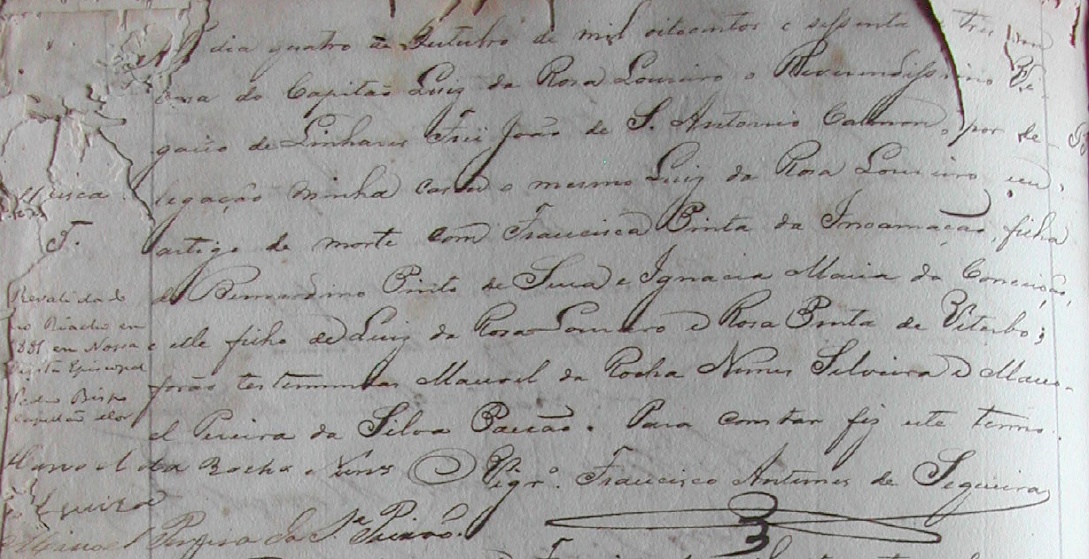 dia quatro de Outubro de mil oitocentos e sessenta e tres em
casa do Capitão Luiz da Rosa Loureiro o Reverendissimo Vi-
gario de Linhares Frei João de S. Antonio Calmon, por de-
legação minha casou o mesmo Luiz da Rosa Loureiro em
artigo de morte com Francisca Pinta da Incarnação, filha
de Bernardino Pinto de e Ignacia Maria da Conceição,
e elle filho de Luiz da Rosa Loureiro e Rosa Pinta de Viterbo;
forão testemunhas Manoel da Rocha Nunes Silveira e Mano-
el Pereira da Silva Paixão. Para constar fiz este termo.
Vigr.º Francisco Antunes de Sequeira
Manoel da Rocha Nunes
Manoel Pereira da S.ª Paixão.
F.
Revalidado
no Riacho em
1881 em Nossa
Visita Episcopal
Pedro Bispo
Capellão mor